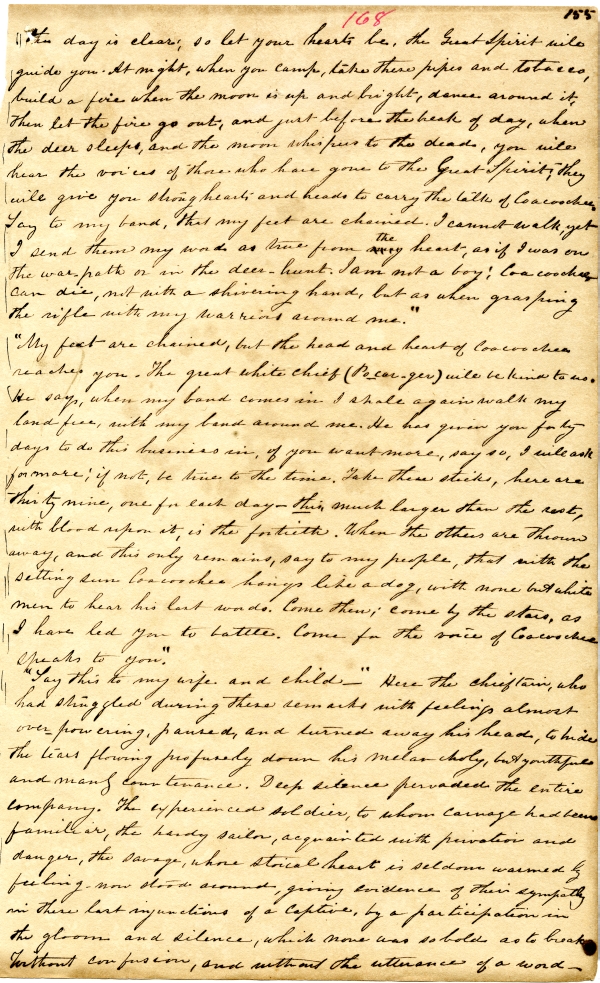 168
155
"The day is clear; so let your hearts be, the Great Spirit will
guide you. At night, when you camp, take these pipes and tobacco,
build a fire when the moon is up and bright, dance around it,
then let the fire go out, and just before the break of day, when
the deer sleeps, and the moon whispers to the dead, you will
hear the voices of those who have gone to the Great Spirit; they
will give you strong hearts and heads to carry the talk of Coacoochee.
Say to my band, that my feet are chained. I cannot walk, yet
I send them my word as true from the heart, as if I was on
the war-path or in the deer-hunt. I am not a boy! Coacoochee
can die, not with a shivering hand, but as when grasping
the rifle with my warriors around me."
"My feet are chained, but the head and heart of Coacoochee
reaches you. The great white chief (Po-car-ger) will be kind to us.
He says, when my band comes in I shall again walk my
land free, with my band around me. He has given you forty
days to do this business in, if you want more, say so, I will ask
for more; if not, be true to the time. Take these sticks, here are
thirty nine, one for each day - this, much larger than the rest,
with blood upon it, is the fortieth. When the others are thrown
away, and this only remains, say to my people, that with the
setting sun Coacoochee hangs like a dog, with none but white
men to hear his last words. Come then; come by the stars, as
I have led you to battle. Come for the voice of Coacoochee
speaks to you."
"Say this to my wife and child—" Here the chieftain, who
had struggled during these remarks with feelings almost
over-powering, paused, and turned away his head, to hide
the tears flowing profusely down his melancholy, but youthful
and manly countenance. Deep silence pervaded the entire
company. The experienced soldier, to whom carnage had been
familiar, the hardy sailor, acquainted with privation and
danger, the savage, whose stoical heart is seldom warmed by
feeling - now stood around, giving evidence of their sympathy
in these last injunctions of a captive, by a participation in
the gloom and silence, which none was so bold as to break.
Without confusion, and without the utterance of a word—